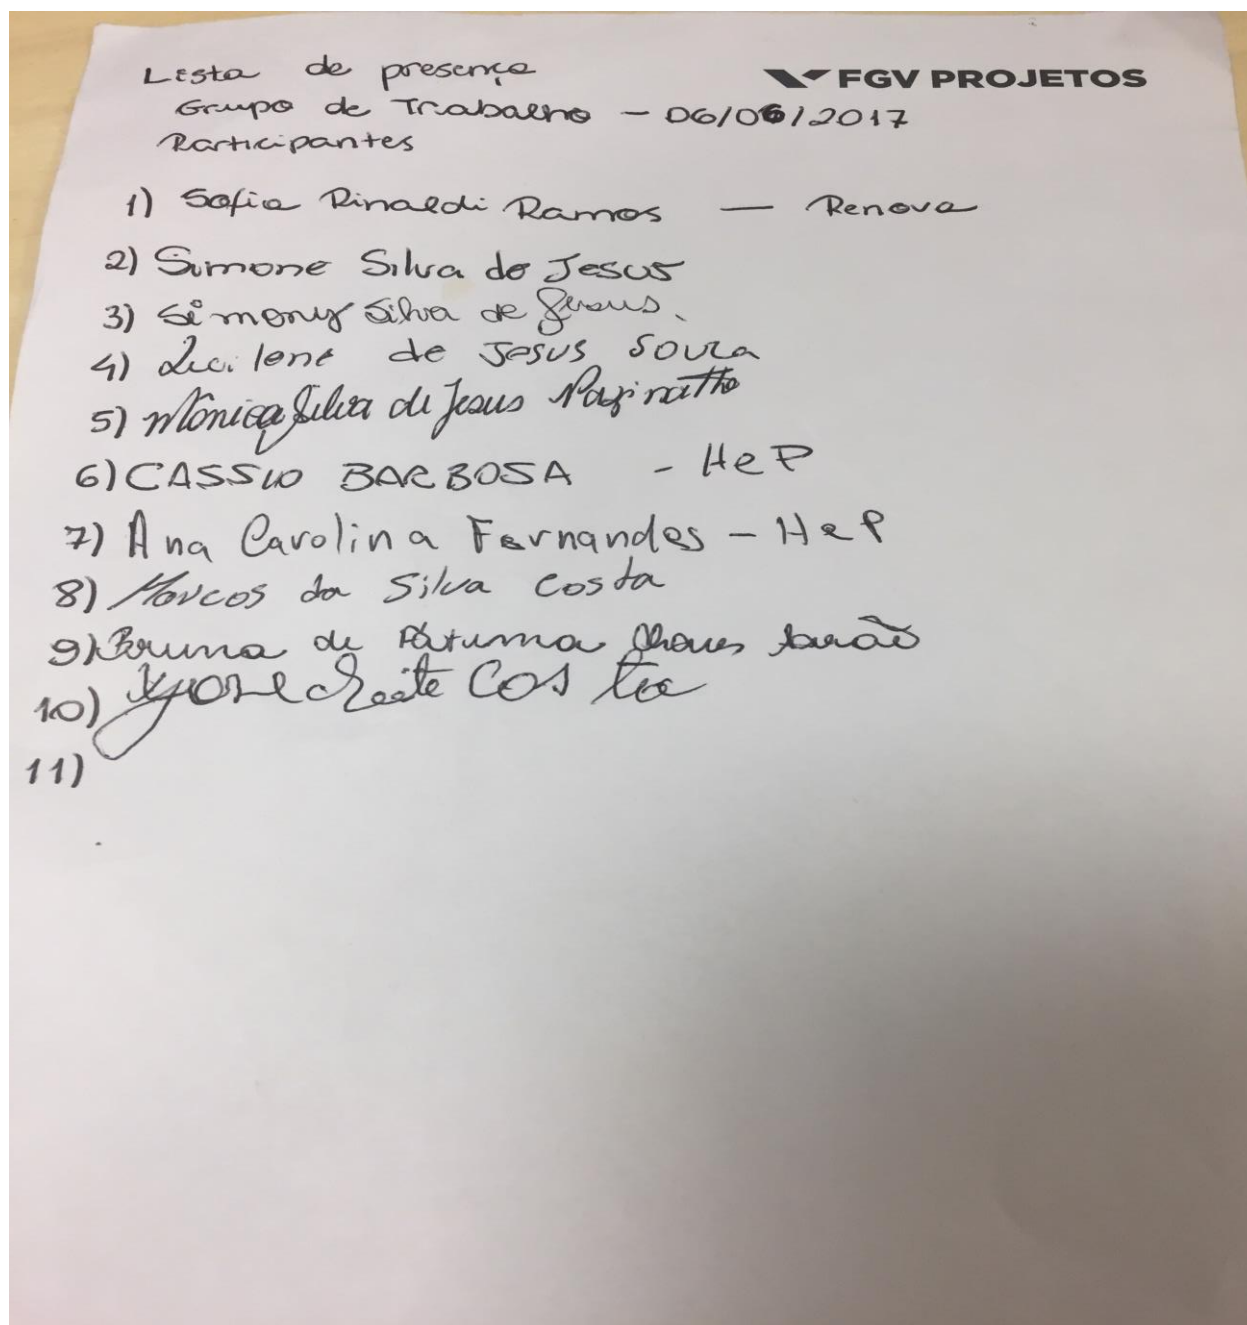 Lista de presença
FGV PROJETOS
Grupo de Trabalho - 06/06/2017
Participantes
1) Sofia Rinaldi Ramos - Renova
2) Simone Silva de Jesus
3) Simony Silva de Jesus.
4) Lucilene de Jesus Souza
5) Mônica Silva de Jesus
6) CASSIO BARBOSA - HeP
7) Ana Carolina Fernandes - HeP
8) Marcos da Silva Costa
9) Bruna de Fátima Chaves
10) Leite Costa
11)